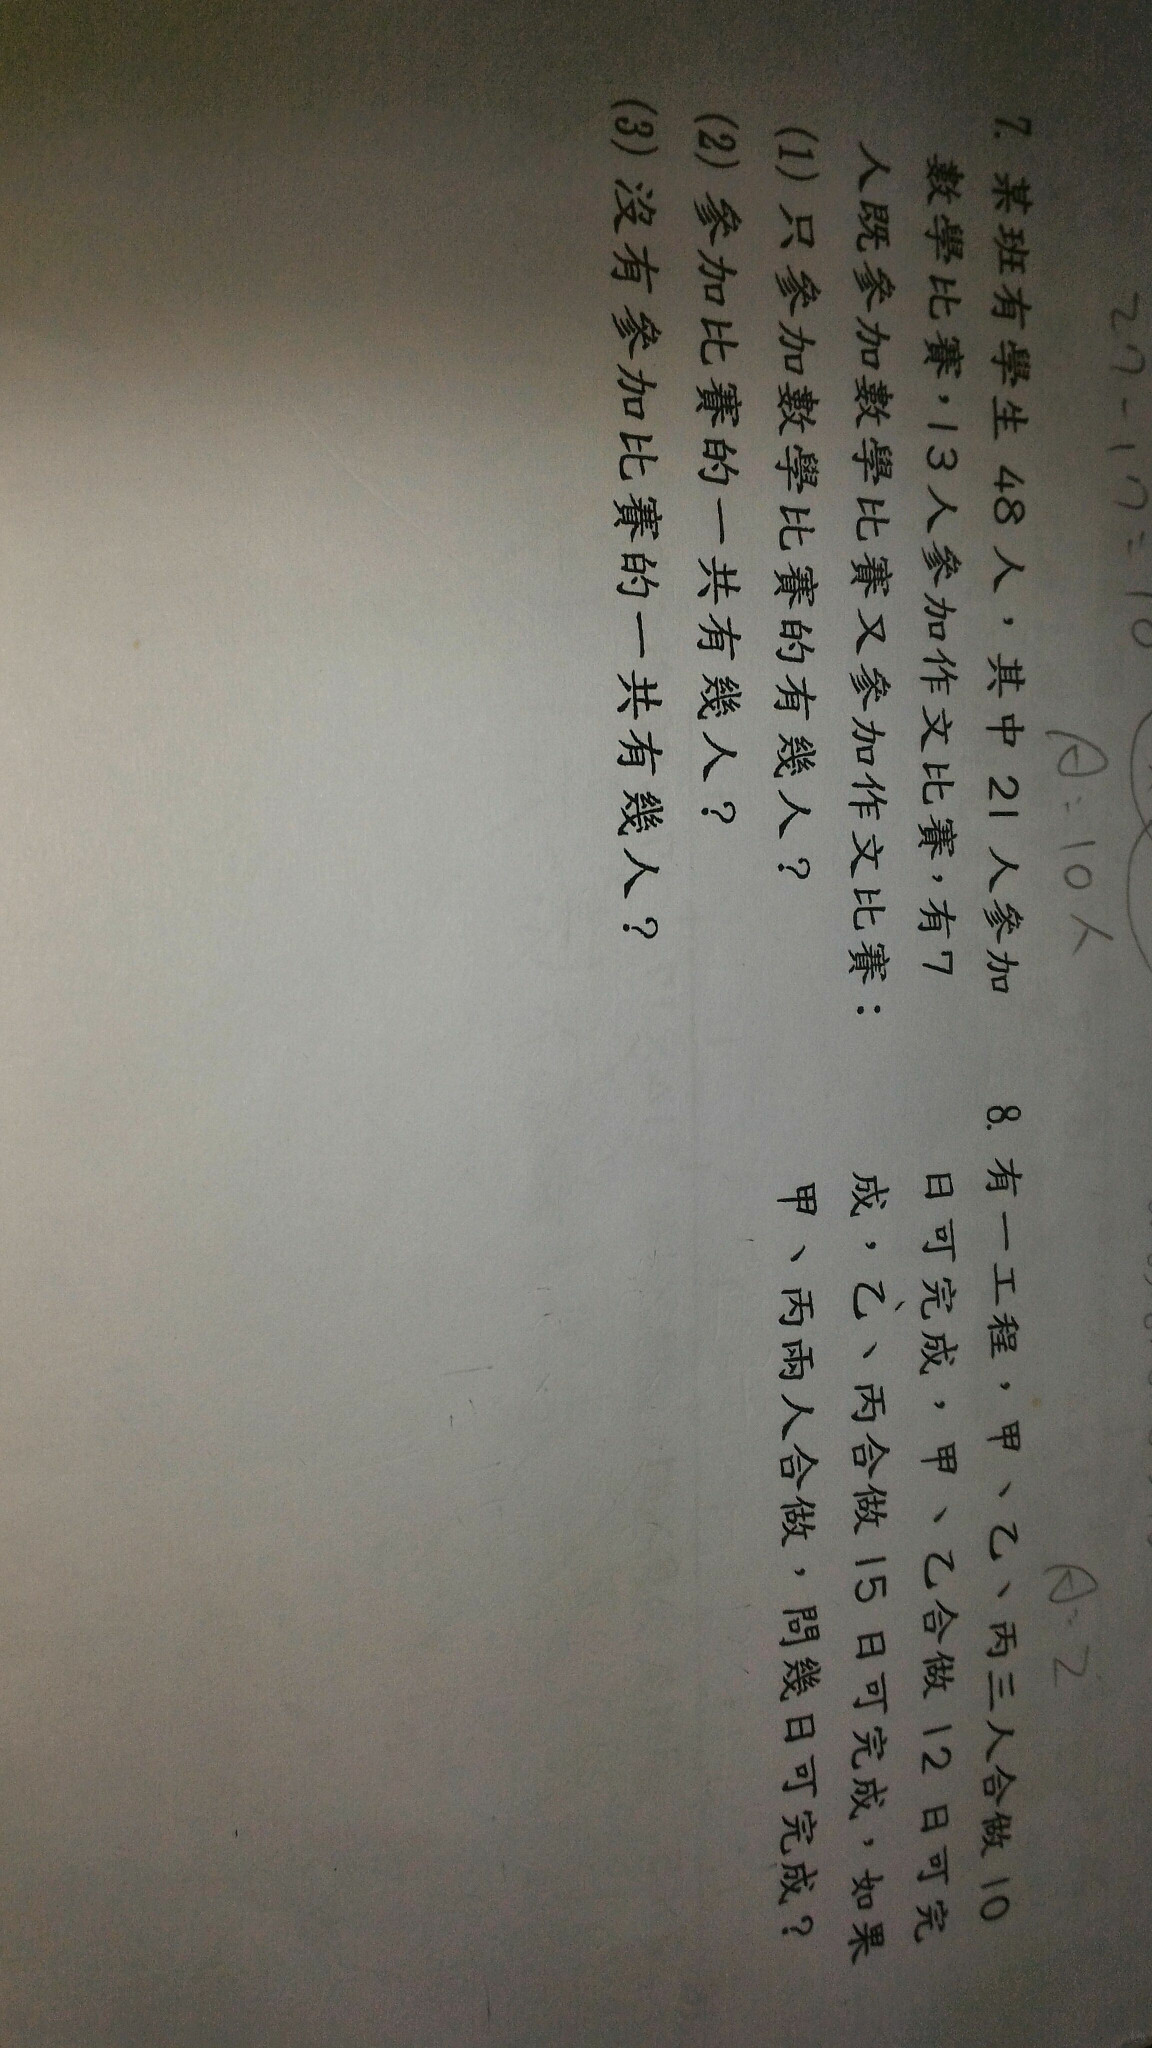 27-17=10
A:10人
A:2
7. 某班有學生 48 人，其中 21 人參加
數學比賽，13 人參加作文比賽，有 7
人既參加數學比賽又參加作文比賽：
(1) 只參加數學比賽的有幾人？
(2) 參加比賽的一共有幾人？
(3) 沒有參加比賽的一共有幾人？
8. 有一工程，甲、乙、丙三人合做 10
日可完成，甲、乙合做 12 日可完
成，乙、丙合做 15 日可完成，如果
甲、丙兩人合做，問幾日可完成？